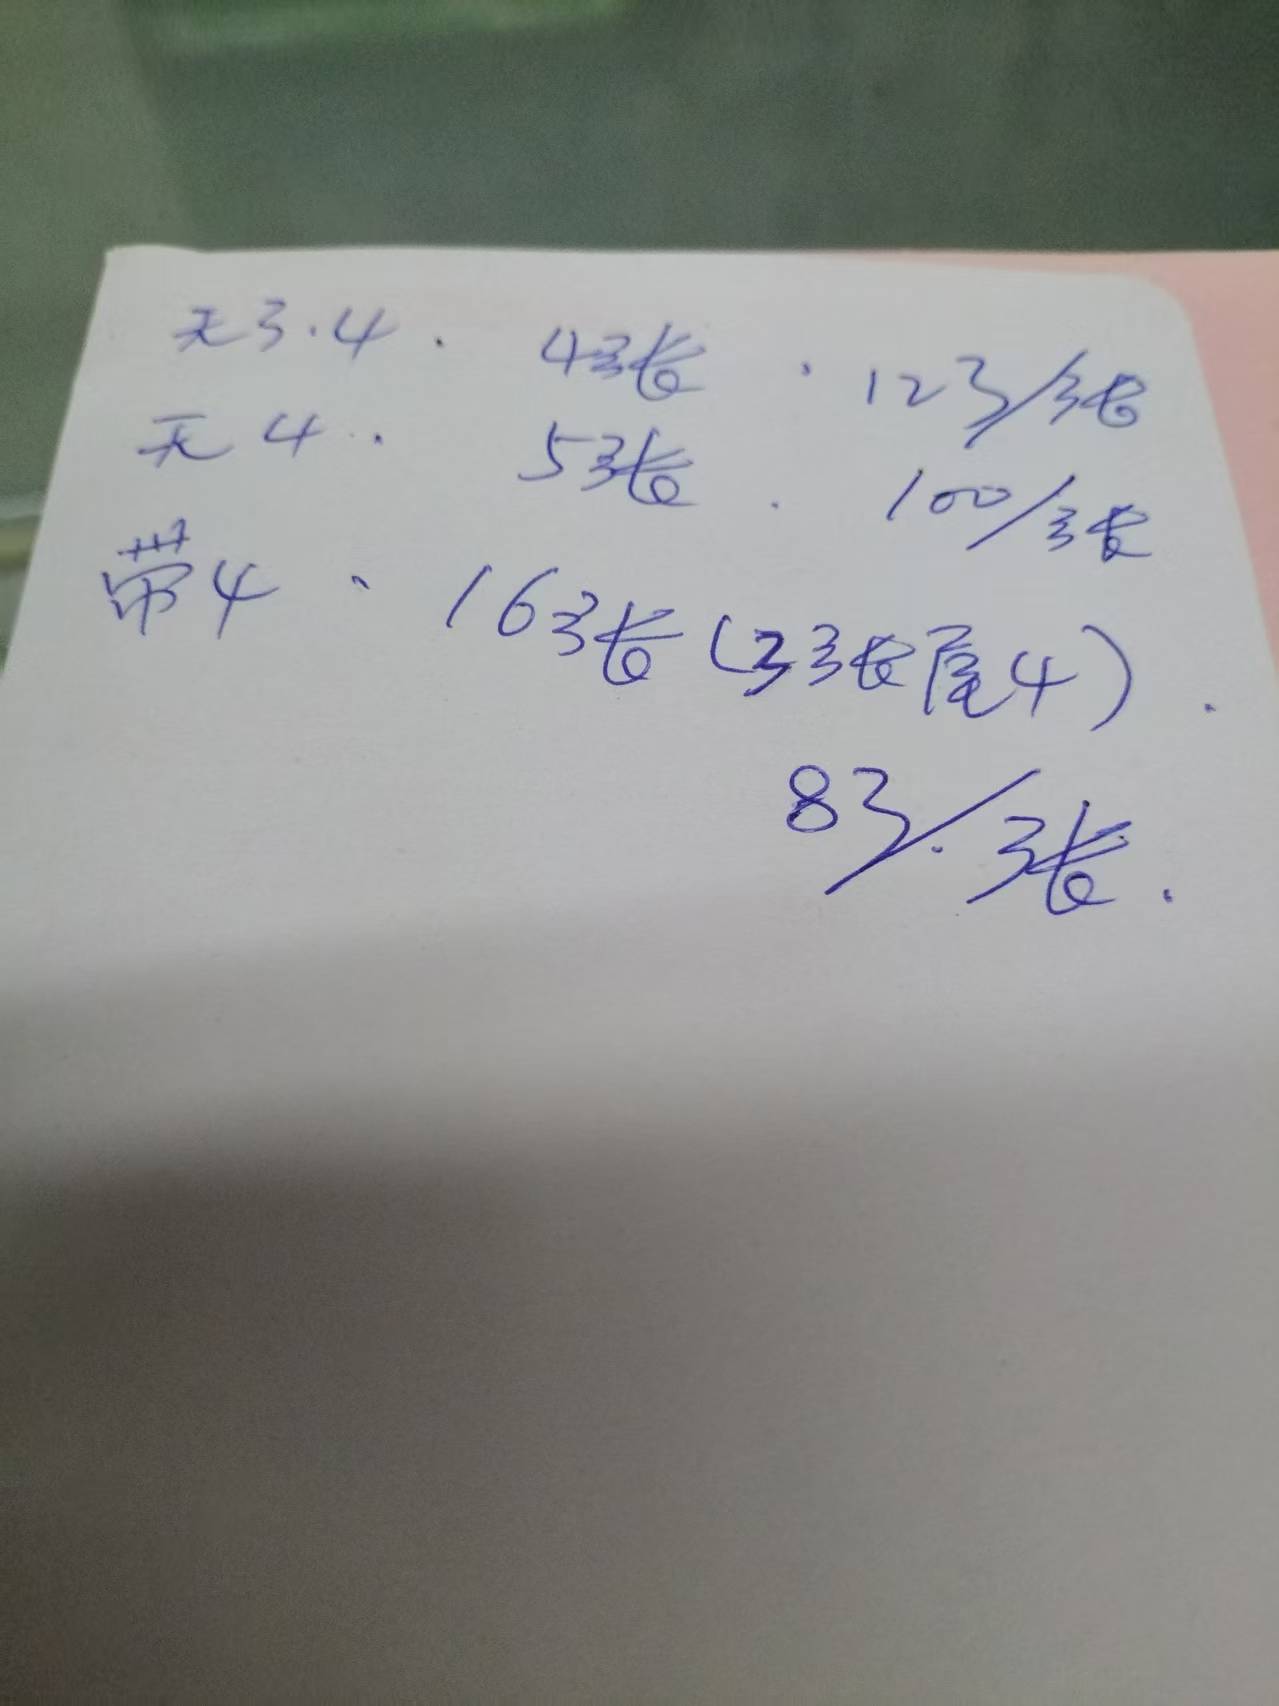 无3.4. 4张. 123/张
无4. 5张. 100/张
带4、16张(3张尾4).
83/张.